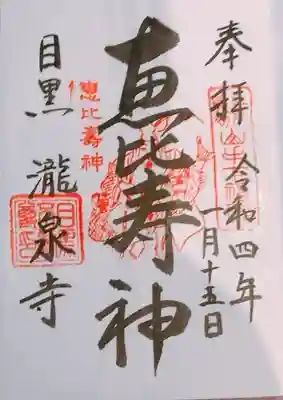 奉拝
令和四年
一月十五日
恵比寿神
恵比寿神
目黒 瀧泉寺